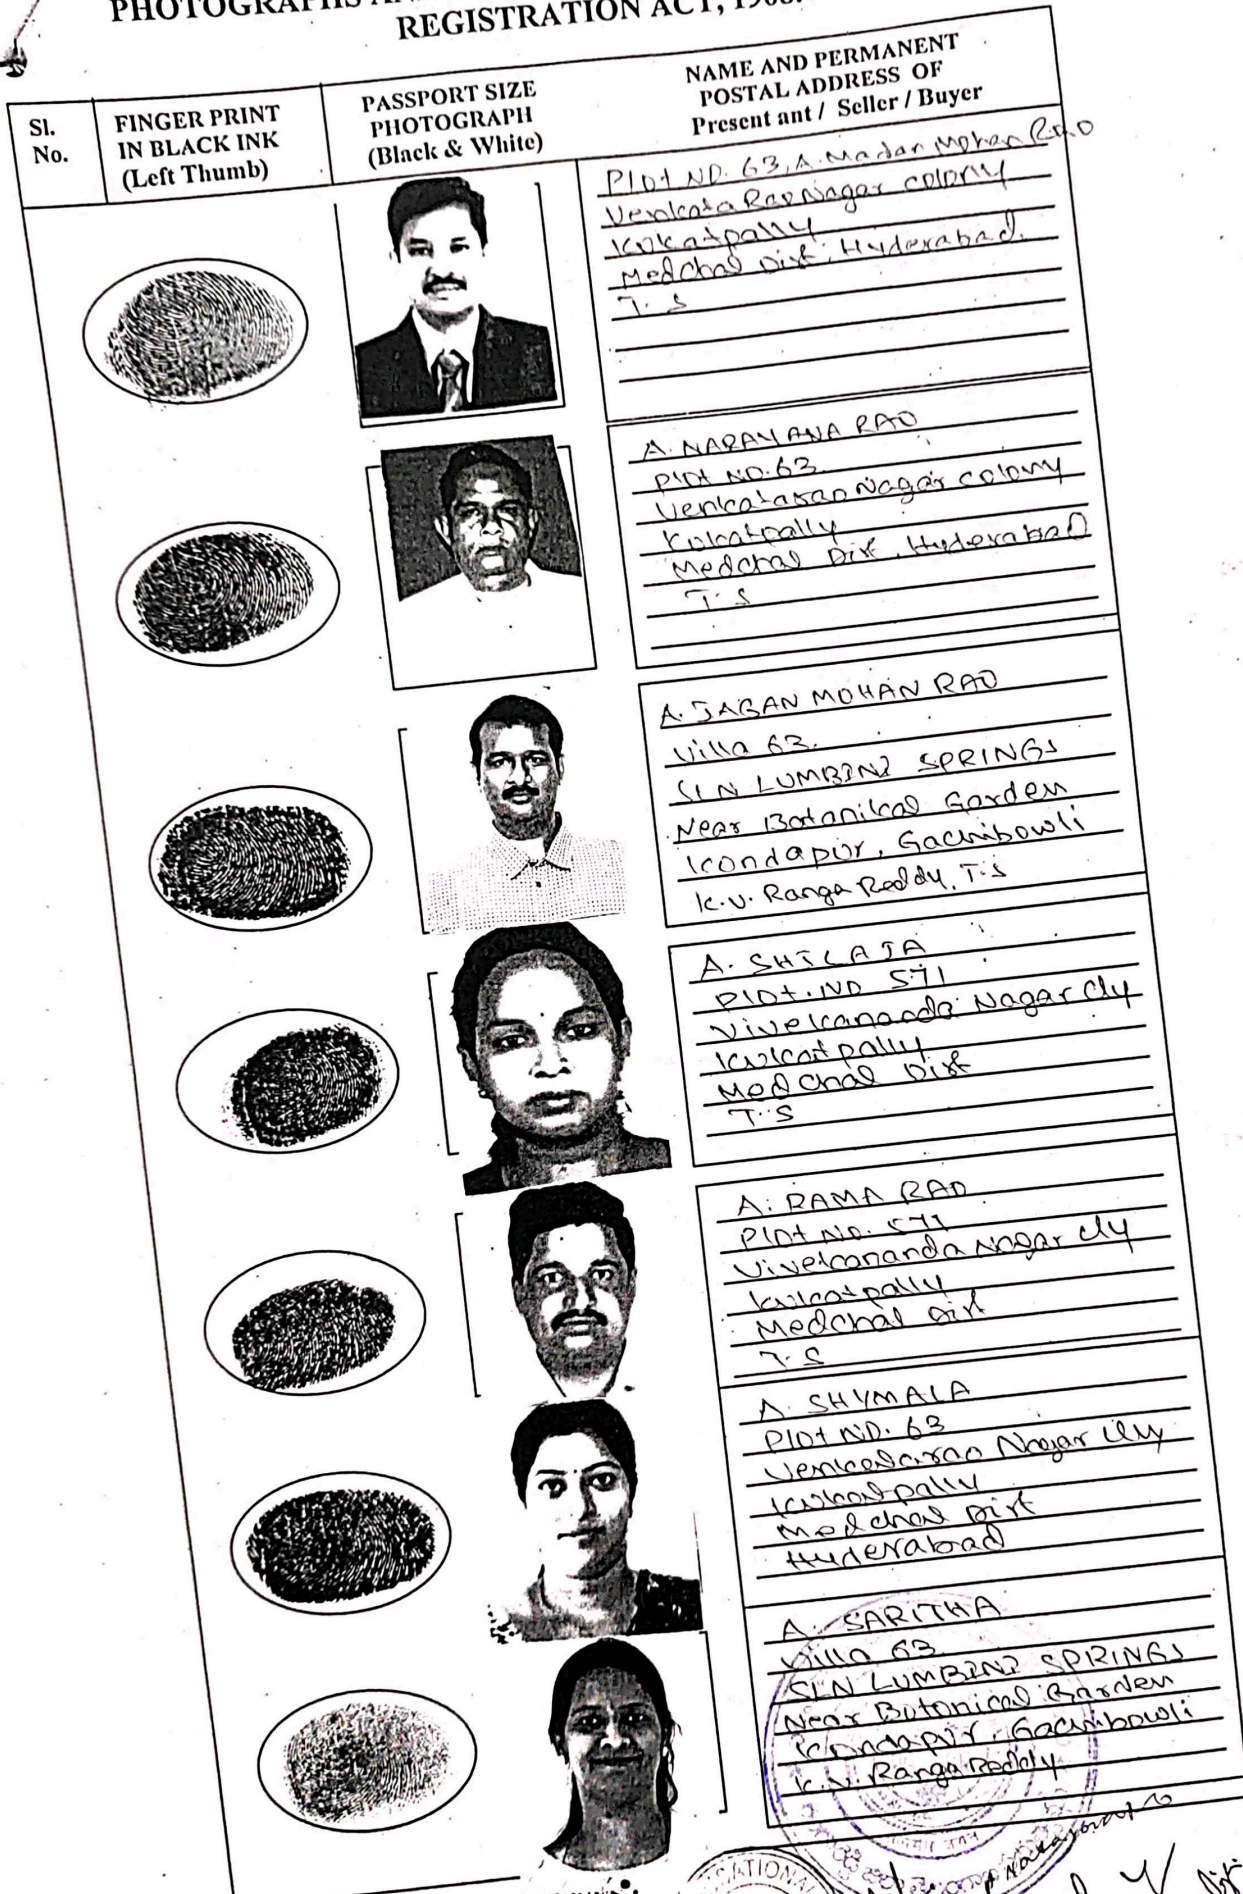 PHOTOGRAPHS
REGISTRATION ACT, 1908.
Sl. No.
FINGER PRINT
IN BLACK INK
(Left Thumb)
PASSPORT SIZE
PHOTOGRAPH
(Black & White)
NAME AND PERMANENT
POSTAL ADDRESS OF
Present ant / Seller / Buyer
Plot NO. 63, A. Madan Mohan Rao
Venkata Rao Nagar colony
Kukatpally
Medchal Dist. Hyderabad.
T.S
A. NARAYANA RAO
Plot NO. 63
Venkatarao Nagar colony
Kukatpally
Medchal Dist, Hyderabad
T.S
A. JAGAN MOHAN RAO
Villa 63.
SLN LUMBINI SPRINGS
Near Botanikal Garden
Kondapur, Gachibowli
K.V. Ranga Reddy, T.S
A. SHILAJA
Plot. NO 571
Vivekananda Nagar Cly
Kukatpally
Medchal Dist
T.S
A. RAMA RAO
Plot No. 571
Vivekananda Nagar cly
Kukatpally
Medchal Dist
T.S
A. SHYMALA
Plot NO. 63
Venkatarao Nagar Cly
Kukatpally
Medchal Dist
Hyderabad
A. SARITHA
Villa 63
SLN LUMBINI SPRINGS
Near Botonical Garden
Kondapur, Gachibowli
K.V. Ranga Reddy